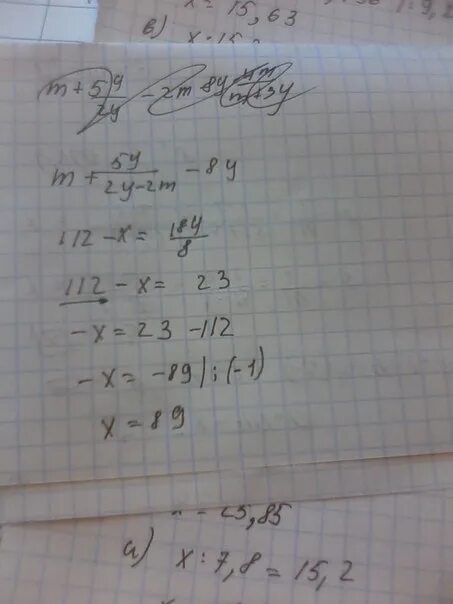 x = 15,63
в)
m + 5y/2y - 2m 8y
m + 5y/(2y-2m) - 8y
112 - x = 184/8
112 - x = 23
-x = 23 - 112
-x = -89 | : (-1)
x = 89
25,85
а) x : 7,8 = 15,2